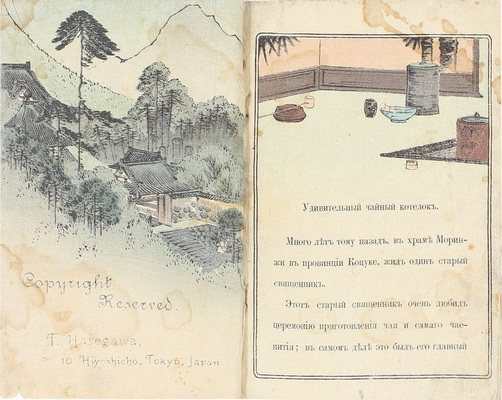 Copyright
Reserved.
T. Hasegawa,
10 Hiyoshicho, Tokyo, Japan.
Удивительный чайный котелокъ.
Много лѣтъ тому назадъ, въ храмѣ Морин-
жи въ провинціи Коцуке, жилъ одинъ старый
священникъ.
Этотъ старый священникъ очень любилъ
церемонію приготовленія чая и самаго чае-
питія; въ самомъ дѣлѣ это былъ его главный